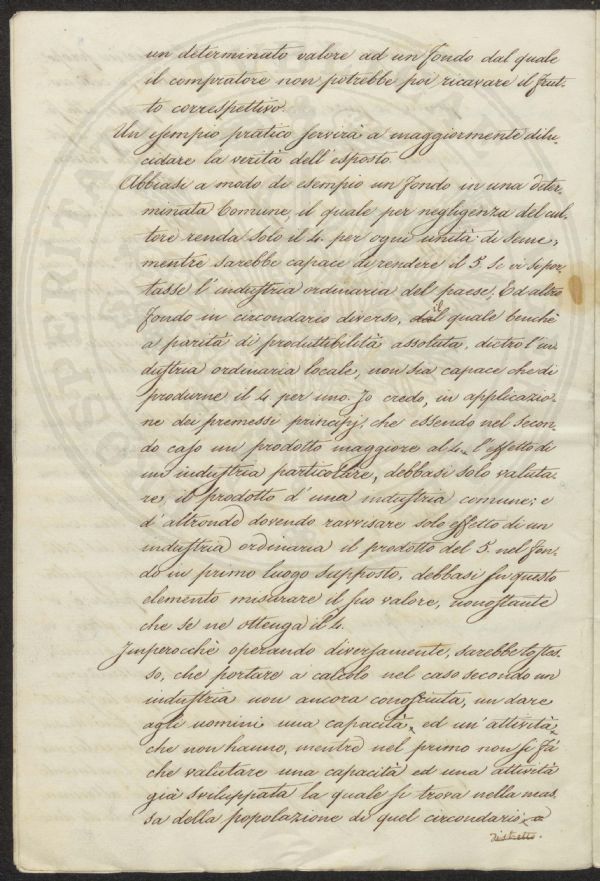 un determinato valore ad un fondo dal quale
il compratore non potrebbe poi ricavare il frut-
to correspettivo.
Un esempio pratico servirà a maggiormente dilu-
cidare la verità dell'esposto.
Abbiasi a modo di esempio un fondo in una deter-
minata Comune, il quale per negligenza del cul-
tore renda solo il 4. per ogni unità di seme,
mentre sarebbe capace di rendere il 5. se vi si por-
tasse l'industria ordinaria del paese. Ed altro
fondo in circondario diverso, il quale benchè
a parità di produttibilità assoluta, dietro l'in-
dustria ordinaria locale, non sia capace che di
produrne il 4. per uno. Io credo, in applicazio-
ne dei premessi principj, che essendo nel secon-
do caso un prodotto maggiore al 4. l'effetto di
un industria particolare, debbasi solo valuta-
re, il prodotto d'una industria comune; e
d'altronde dovendo ravvisare solo effetto di un
industria ordinaria il prodotto del 5. nel fon-
do in primo luogo supposto, debbasi su questo
elemento misurare il suo valore, nonostante
che se ne ottenga il 4.
Imperocchè operando diversamente, sarebbe lo stes-
so, che portare a calcolo nel caso secondo un
industria non ancora conosciuta, un dare
agli uomini una capacità, ed un'attività,
che non hanno, mentre nel primo non si fà
che valutare una capacità ed una attività
già sviluppata la quale si trova nella mas-
sa della popolazione di quel circondario o
distretto.